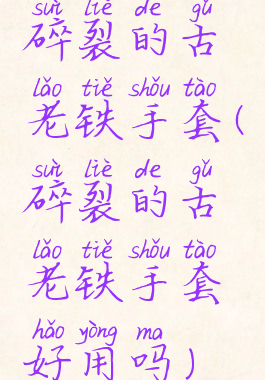 suì liè de gǔ
碎裂的古
lǎo tiě shǒu tào
老铁手套(
suì liè de gǔ
碎裂的古
lǎo tiě shǒu tào
老铁手套
hǎo yòng ma
好用吗)